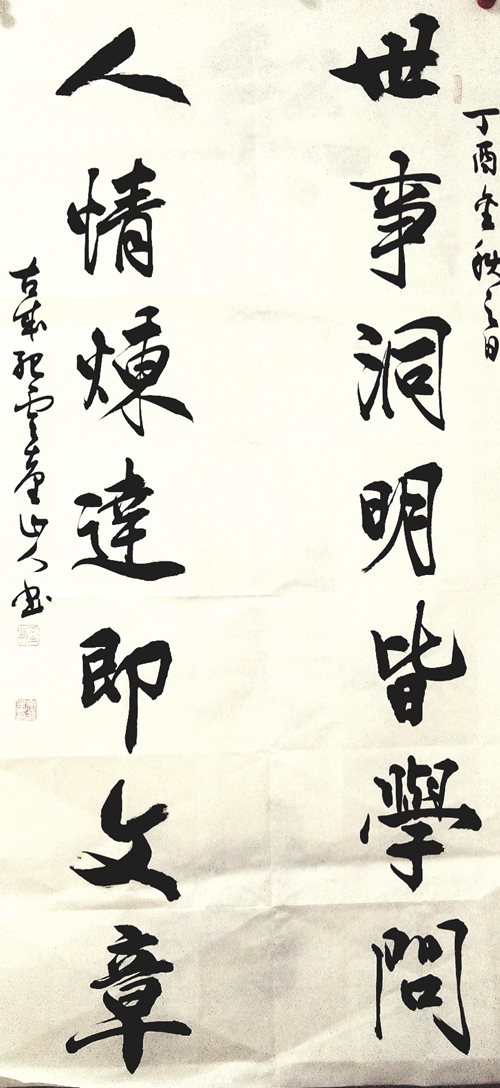 丁酉金秋之日
世事洞明皆學問
人情煉達即文章
山人書